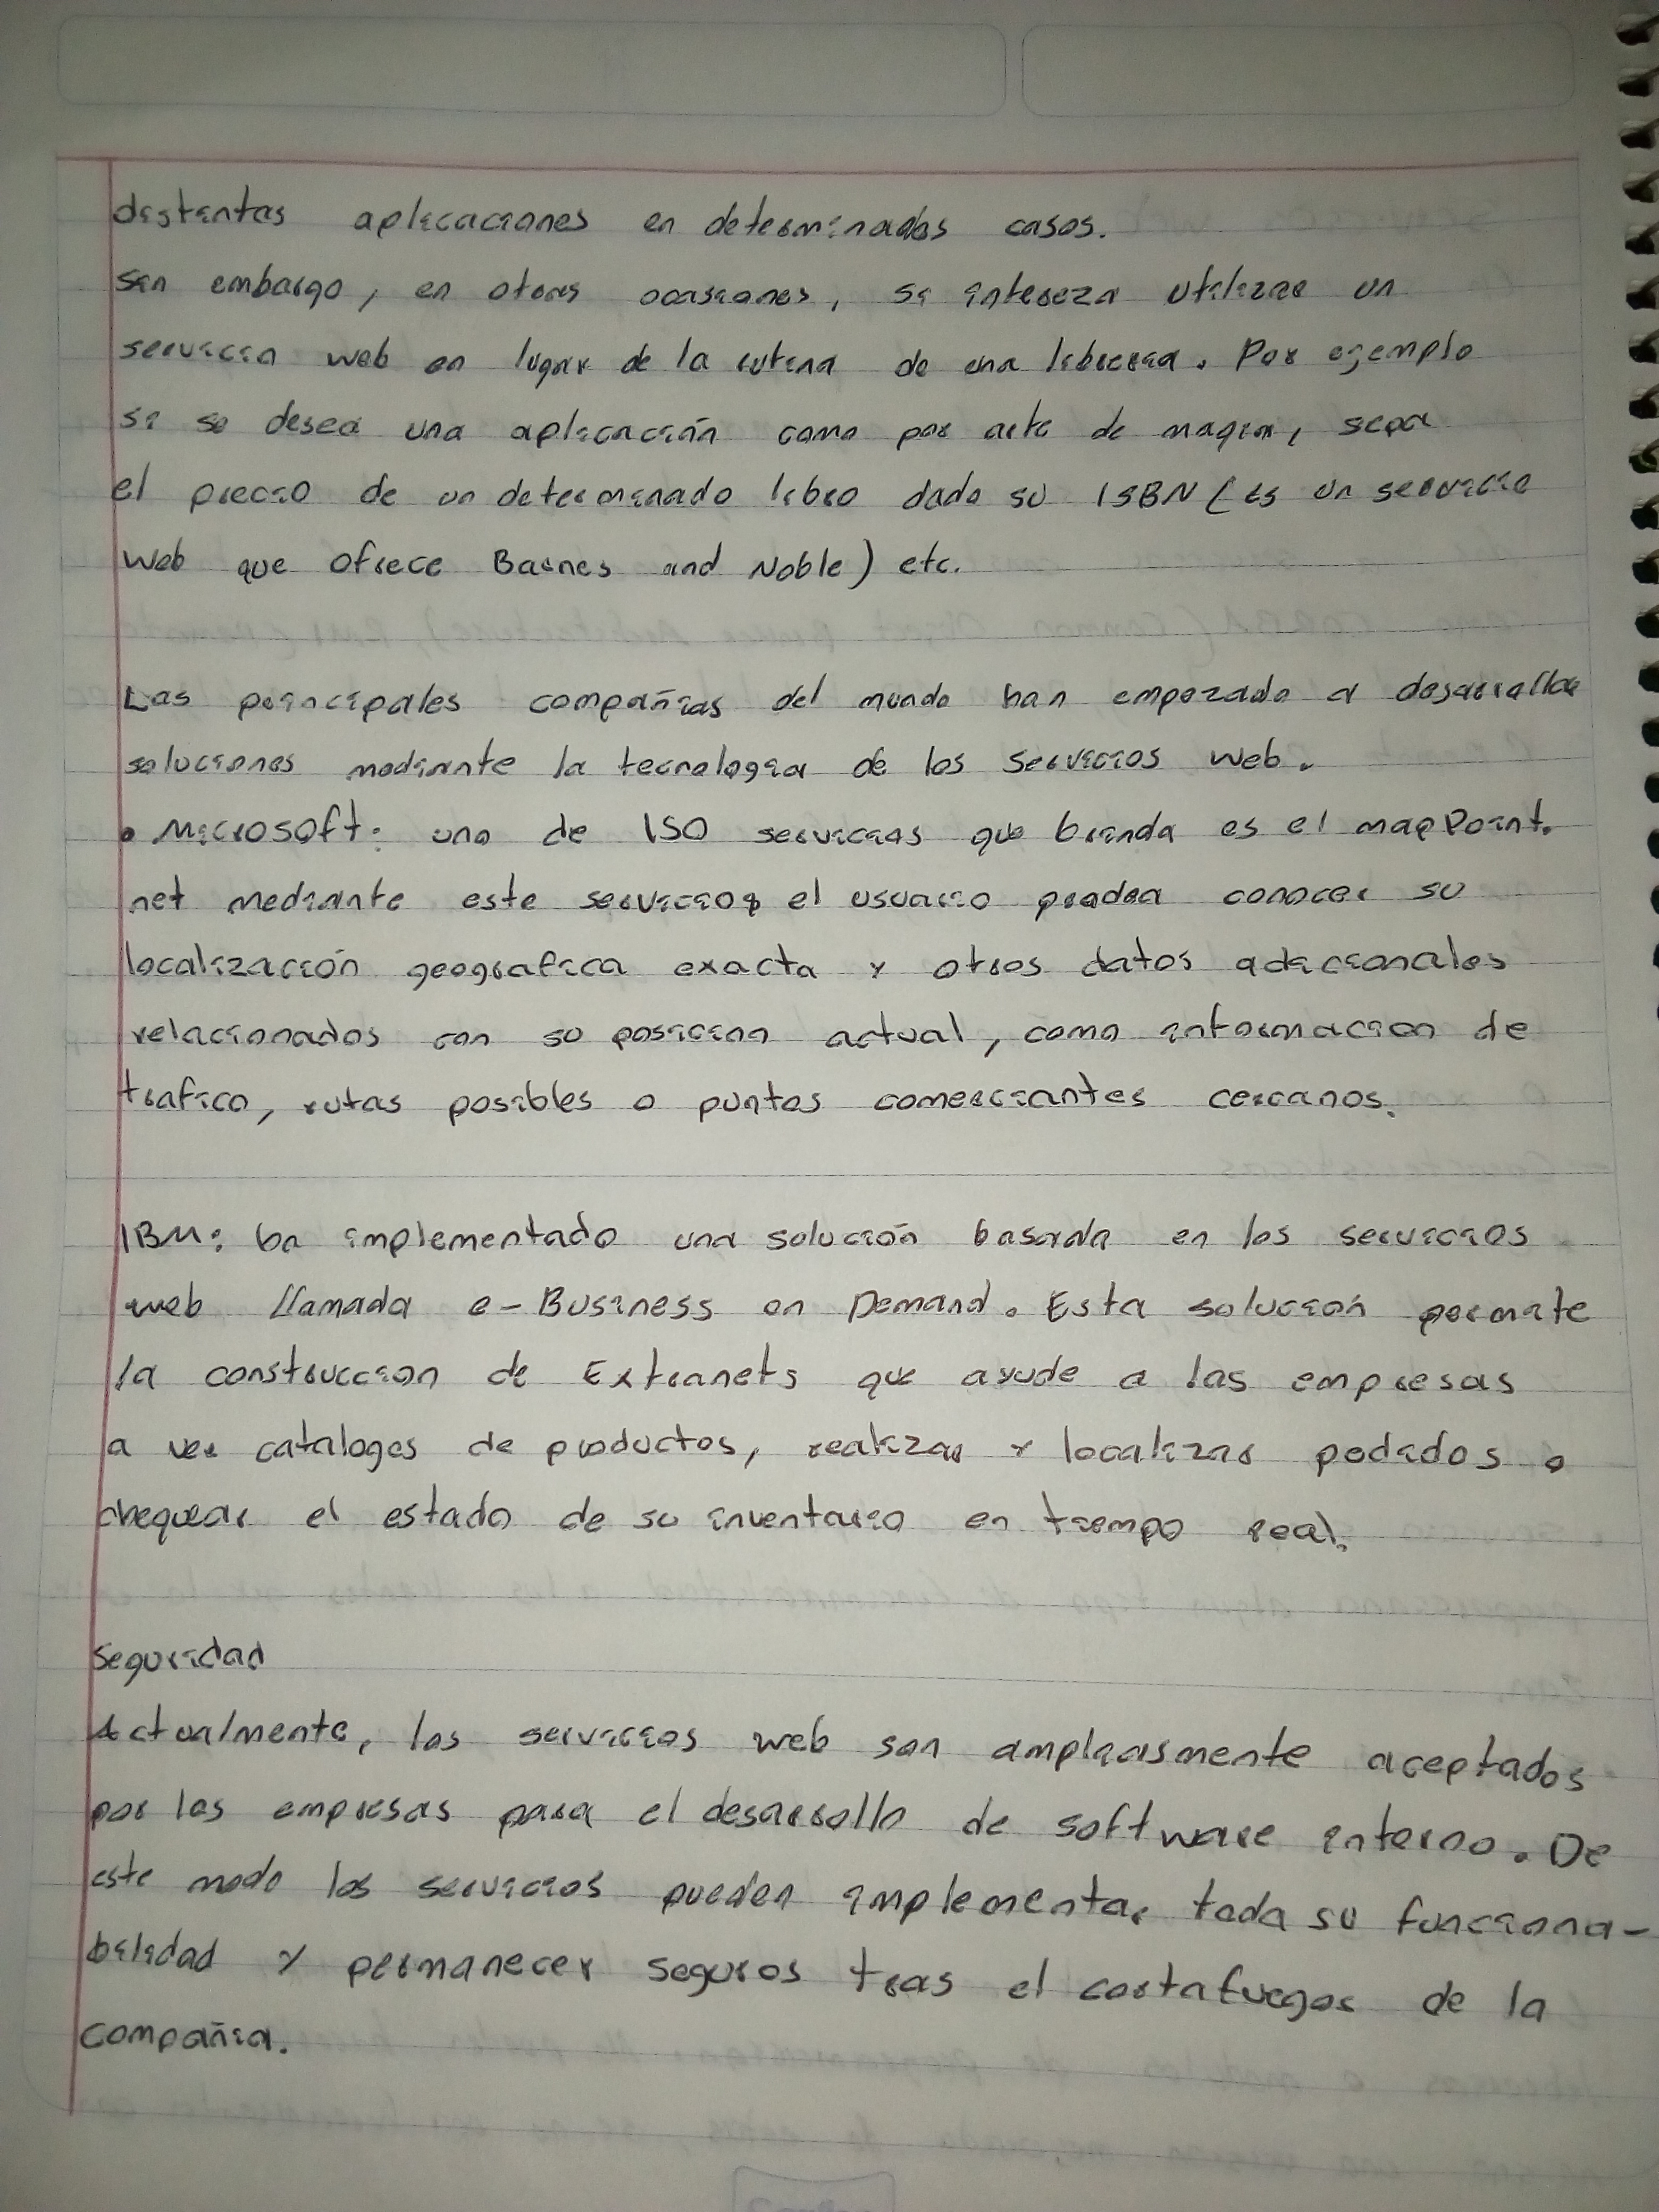 distintas aplicaciones en determinados casos.
sin embargo, en otras ocasiones, si intereza utilizar un
servicio web en lugar de la rutina de una libreria. Por ejemplo
si se desea una aplicación como por arte de magia, sepa
el precio de un determinado libro dado su ISBN (es un servicio
web que ofrece Barnes and Noble) etc.
Las principales compañias del mundo han empezado a desarrollar
soluciones mediante la tecnologia de los servicios web.
• Microsoft: uno de ISO servicios que brinda es el mapPoint.
net mediante este servicios el usuario prodra conocer su
localización geografica exacta y otros datos adicionales
relacionados con su posicion actual, como informacion de
trafico, rutas posibles o puntos comerciantes cercanos.
IBM: ha implementado una solución basada en los servicios
web llamada e-Business on Demand. Esta solución permite
la construccion de Extranets que ayude a las empresas
a ver catalogos de productos, realizar y localizar pedidos o
chequear el estado de su inventario en tiempo real.
Seguridad
Actualmente, los servicios web son ampliasmente aceptados
por las empresas para el desarrollo de software interno. De
este modo los servicios pueden implementar toda su funciona-
bilidad y permanecer seguros tras el cortafuegos de la
compañia.